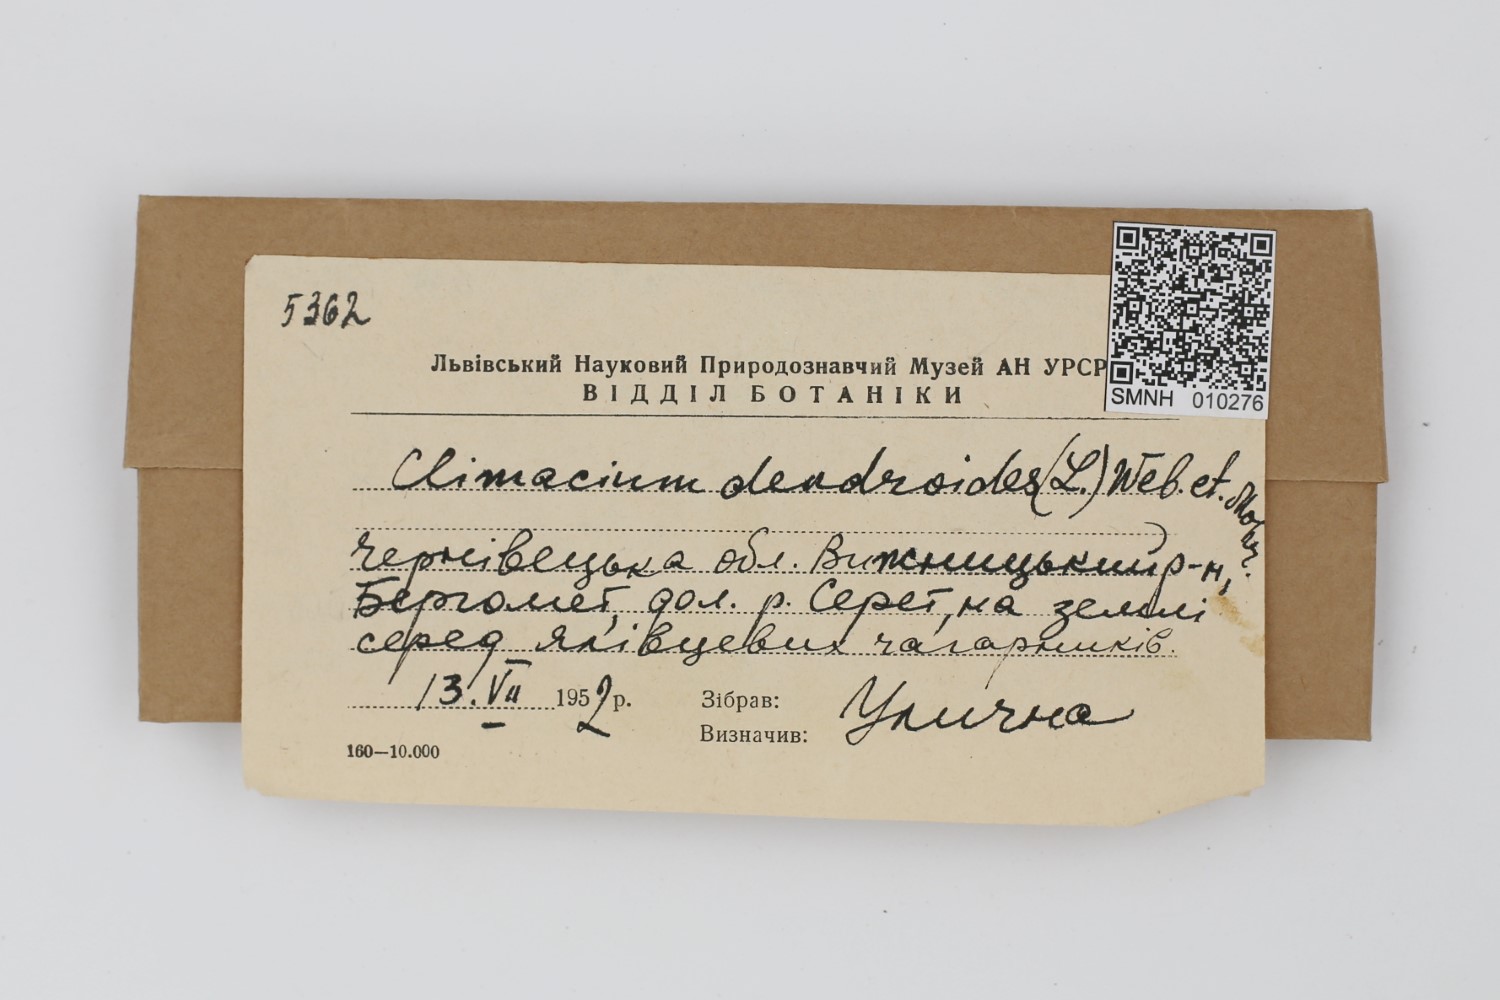 5362
Львівський Науковий Природознавчий Музей АН УРСР
ВІДДІЛ БОТАНІКИ
SMNH 010276
Climacium dendroides (L.) Web. et. Mohr.
Чернівецька обл. Вижницький р-н,
Бергомет, дол. р. Серет, на землі
серед ялівцевих чагарників.
13.VII 1952 р.
Зібрав: Улична
Визначив:
160—10.000